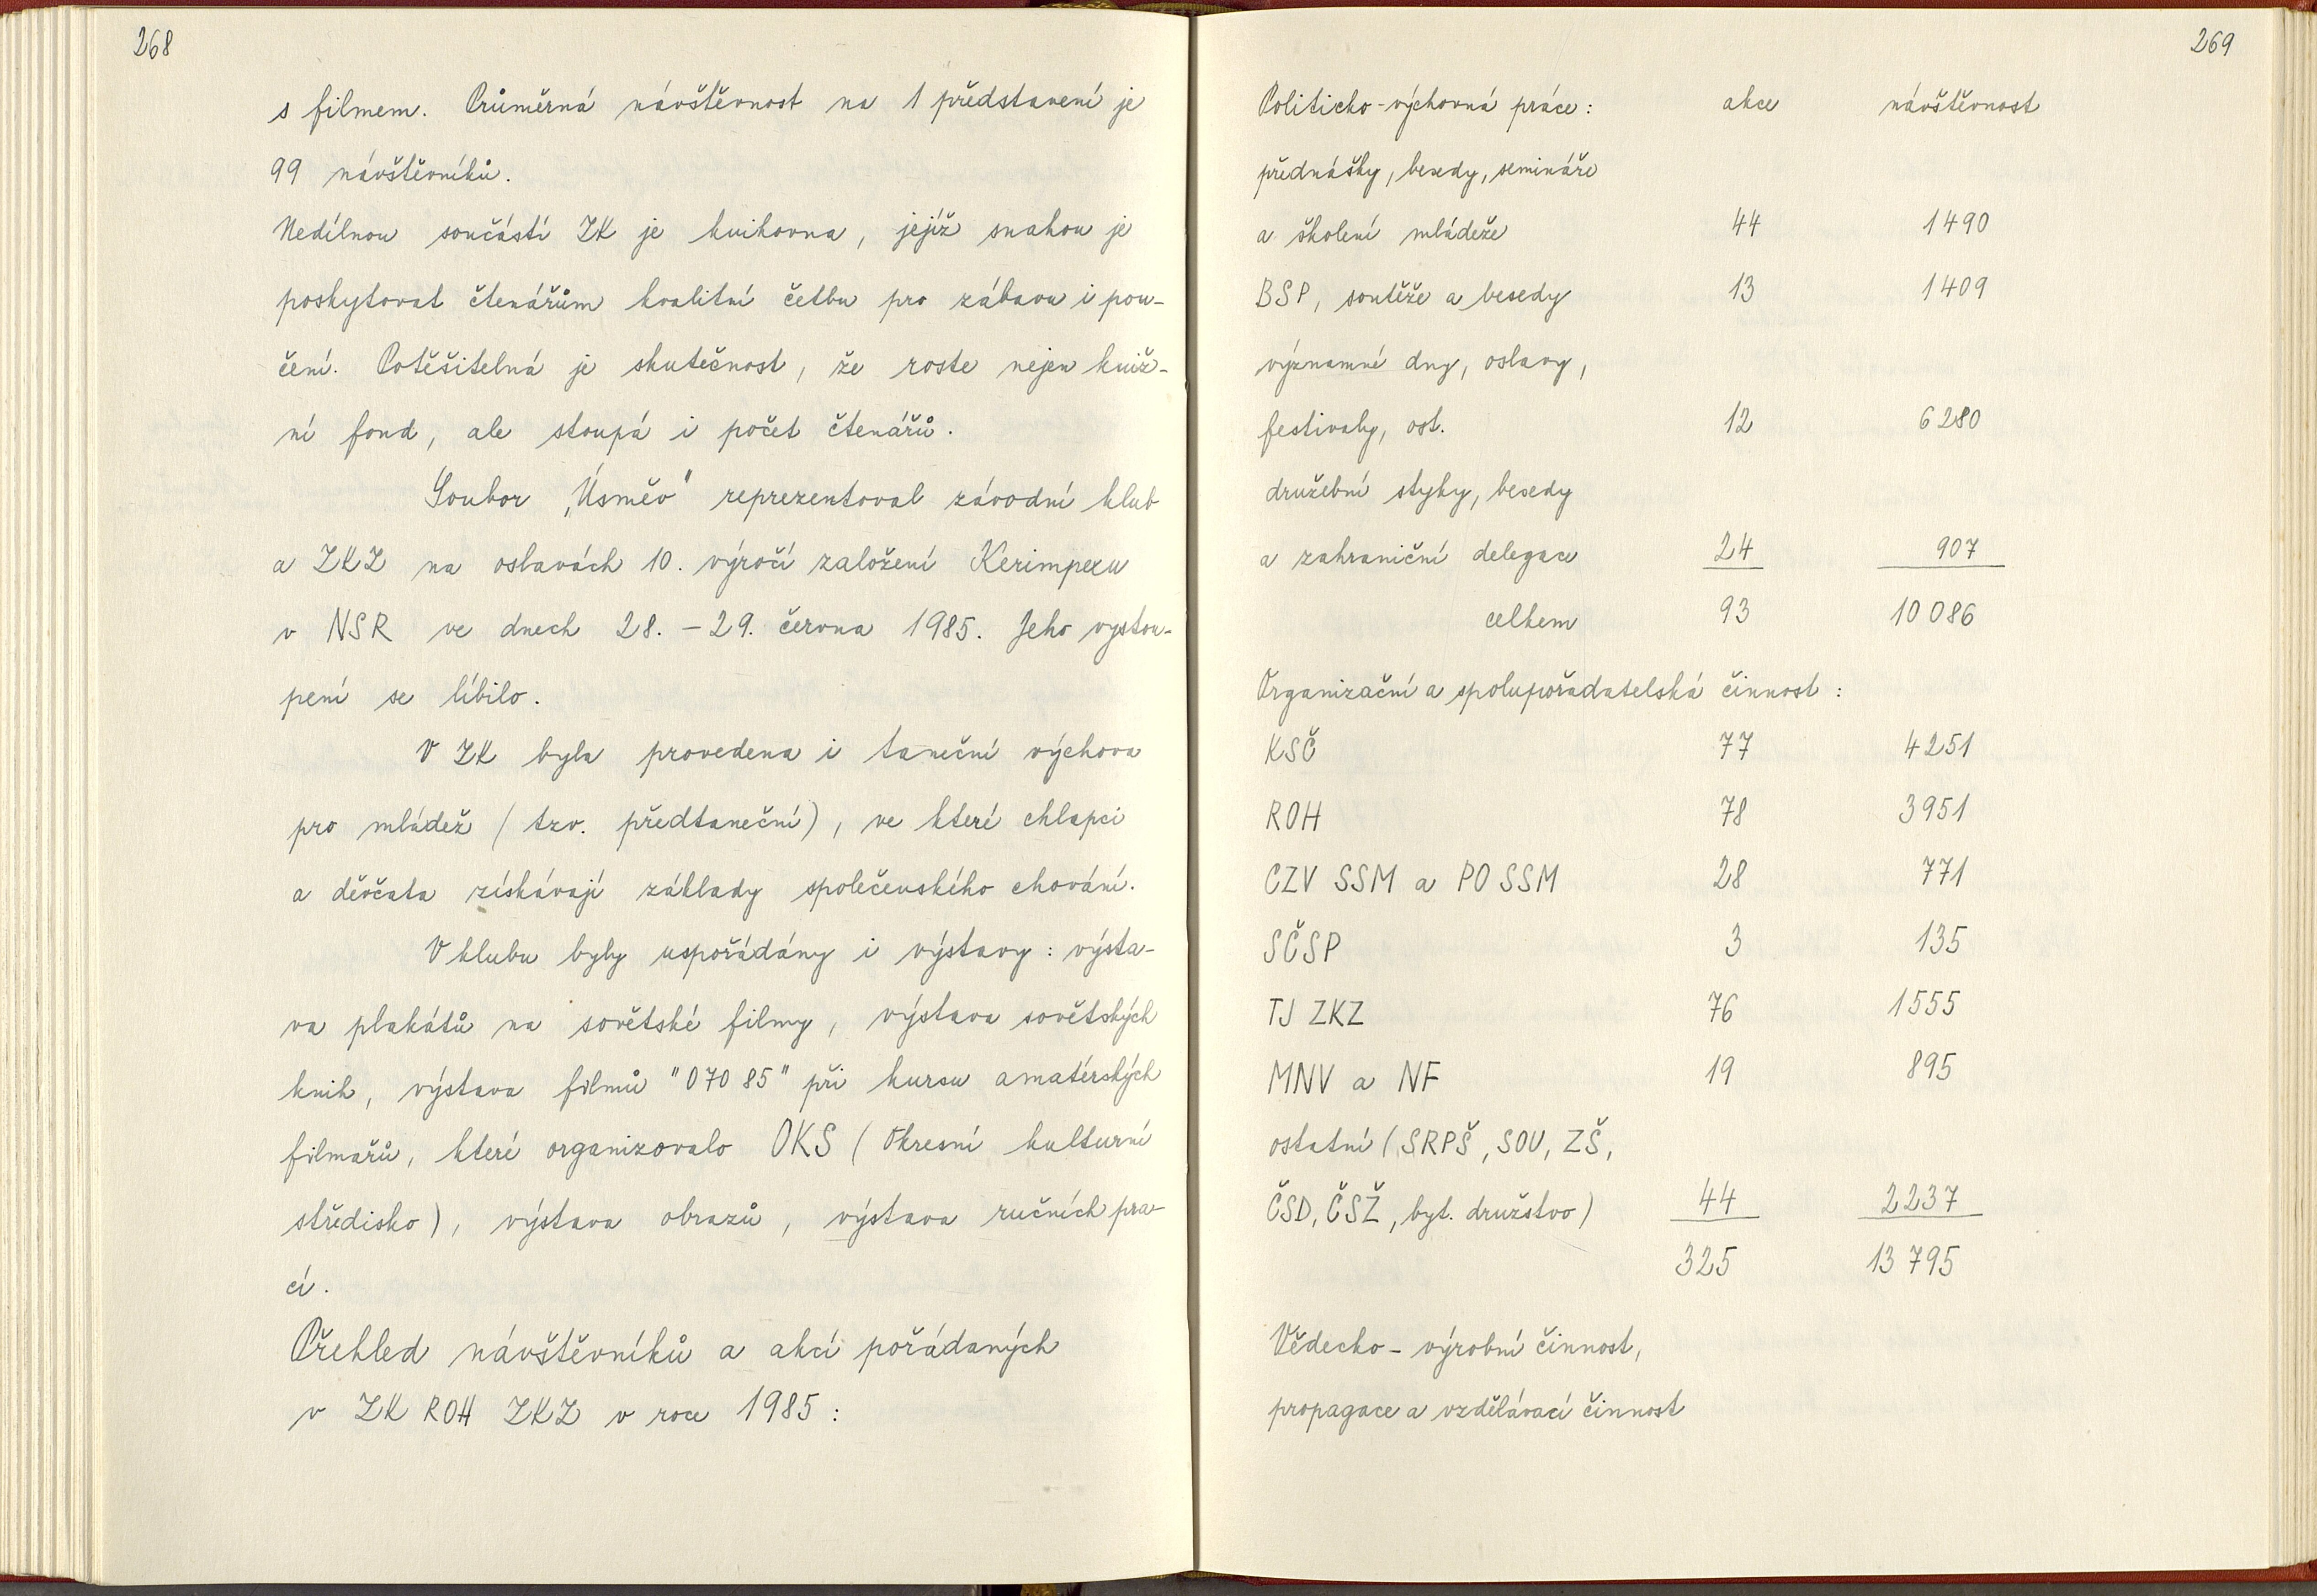 268
s filmem. Průměrná návštěvnost na 1 představení je
99 návštěvníků.
Nedílnou součástí ZK je knihovna, jejíž snahou je
poskytovat čtenářům kvalitní četbu pro zábavu i pou-
čení. Potěšitelná je skutečnost, že roste nejen kniž-
ní fond, ale stoupá i počet čtenářů.
Soubor „Úsměv" reprezentoval závodní klub
a ZKZ na oslavách 10. výročí založení Kerimpexu
v NSR ve dnech 28. – 29. června 1985. Jeho vystou-
pení se líbilo.
V ZK byla provedena i taneční výchova
pro mládež (tzv. předtaneční), ve které chlapci
a děvčata získávají základy společenského chování.
V klubu byly uspořádány i výstavy: výsta-
va plakátů na sovětské filmy, výstava sovětských
knih, výstava filmů "070 85" při kursu amatérských
filmařů, které organizovalo OKS (Okresní kulturní
středisko), výstava obrazů, výstava ručních pra-
cí.
Přehled návštěvníků a akcí pořádaných
v ZK ROH ZKZ v roce 1985:
269
Politicko-výchovná práce: akce návštěvnost
přednášky, besedy, semináře
a školení mládeže 44 1490
BSP, soutěže a besedy 13 1409
významné dny, oslavy,
festivaly, ost. 12 6280
družební styky, besedy
a zahraniční delegace 24 907
celkem 93 10 086
Organizační a spolupořadatelská činnost:
KSČ 77 4251
ROH 78 3951
CZV SSM a PO SSM 28 771
SČSP 3 135
TJ ZKZ 76 1555
MNV a NF 19 895
ostatní (SRPŠ, SOU, ZŠ,
ČSD, ČSŽ, byt. družstvo) 44 2237
325 13 795
Vědecko – výrobní činnost,
propagace a vzdělávací činnost